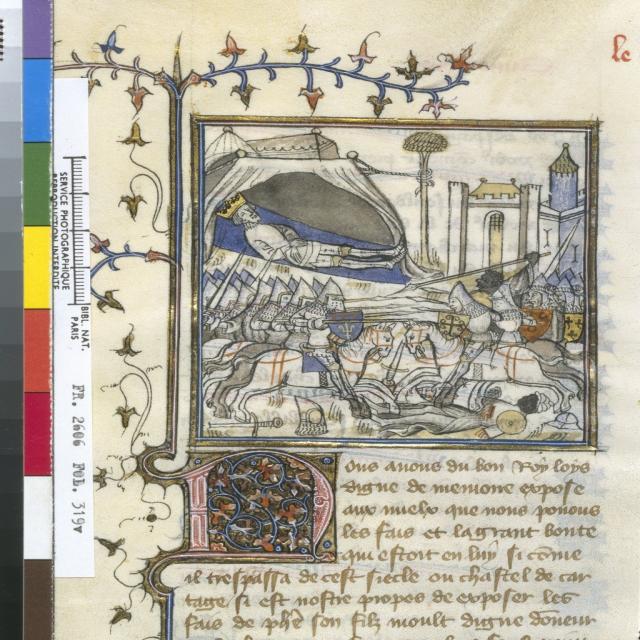 le
SERVICE PHOTOGRAPHIQUE
REPRODUCTION INTERDITE
BIBL. NAT.
PARIS
FR. 2606 FOL. 319v
Nous auons du bon Roy loys
digne de memoire expose
aux mielx que nous pouons
les fais et la grant bonte
qui estoit en luy si cōme
il trespassa de cest siecle ou chastel de car
tage si est nostre propos de exposer les
fais de phē son filz moult digne donneur